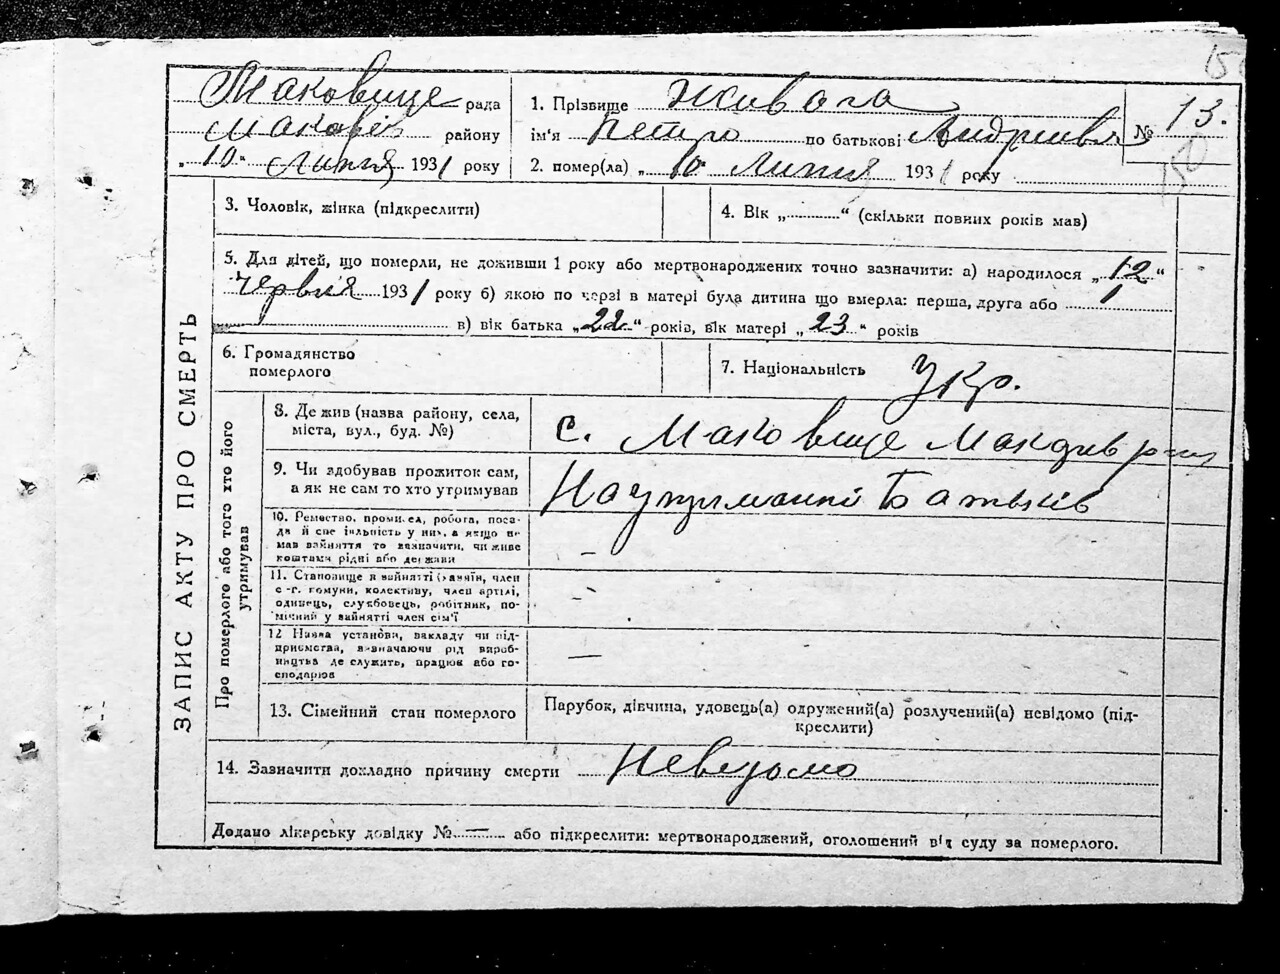 15
Маковище рада
1. Прізвище Живага
№ 13.
Маковів району
ім'я Петро по батькові Андрієвич
„10“ Липня 1931 року
2. помер(ла) „10“ Липня 1931 року
150
ЗАПИС АКТУ ПРО СМЕРТЬ
3. Чоловік, жінка (підкреслити)
4. Вік „............“ (скільки повних років мав)
5. Для дітей, що померли, не доживши 1 року або мертвонароджених точно зазначити: а) народилося „12“
Червня 1931 року б) якою по черзі в матері була дитина що вмерла: перша, друга або 1
в) вік батька „22“ років, вік матері „23“ років
6. Громадянство
померлого
7. Національність Укр.
Про померлого або того хто його
утримував
8. Де жив (назва району, села,
міста, вул., буд. №)
с. Маковище
9. Чи здобував прожиток сам,
а як не сам то хто утримував
На утриманні батьків
10. Ремество, промисел, робота, поса-
да й спеціальність у них, а якщо не
мав зайняття то зазначити, чи живе
коштами рідні або держави
–
11. Становище в зайнятті (хазяїн, член
с.-г. комуни, колективу, член артілі,
одинець, службовець, робітник, по-
мічний у зайнятті член сім'ї
–
12 Назва установи, закладу чи під-
приємства, визначаючи рід вироб-
ництва де служить, працює або го-
сподарює
—
13. Сімейний стан померлого
Парубок, дівчина, удовець(а) одружений(а) розлучений(а) невідомо (під-
креслити)
14. Зазначити докладно причину смерти Неведомо
Додано лікарську довідку №—........ або підкреслити: мертвонароджений, оголошений від суду за померлого.